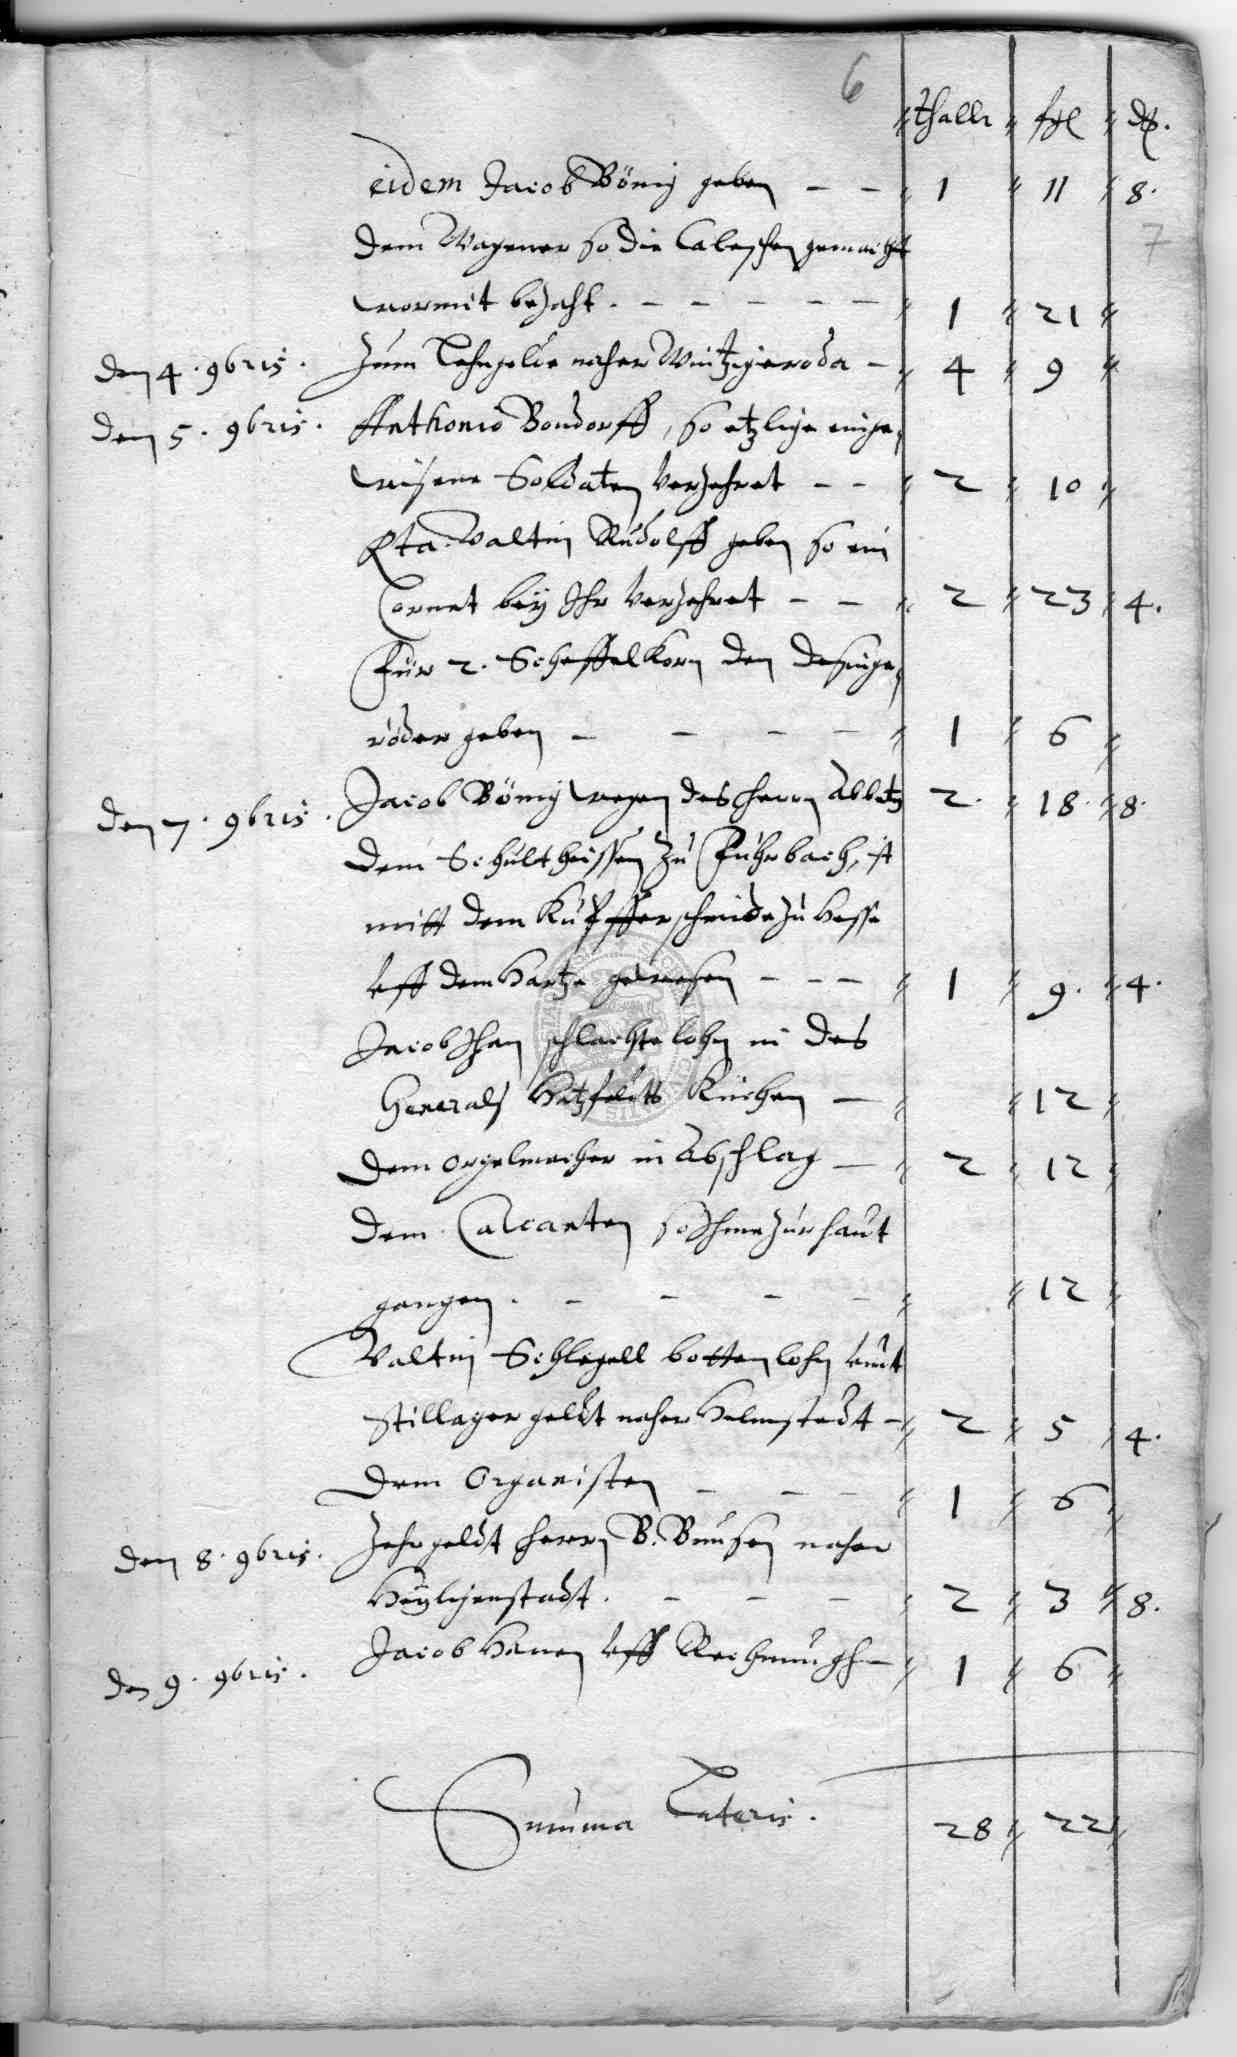 6
thallr ggl d.
eidem Jacob Bönig geben - - 1 11 8.
7
dem Wagener so die Caleschen gemacht
wormit bezahlt. - - - - - 1 21
den 4. 9bris. Zum Zehrgelde naher Wintzigeroda - 4 9
den 5. 9bris. Anthonio Bondorff, so etzliche einge,
wisene Soldaten verzehret - - 2 10
Valtin Rudolff geben so ein
Cornet bey Ihr verzehret - - 2 23 4.
Für 2. Scheffel Korn den Desinge,
röder geben - - - - 1 6
den 7. 9bris. Jacob Bönig wegen des Herrn Abbetz 2. 18. 8.
dem Schultheissen zu Fuhrbach, ist
mitt dem Kupfferschmide zu Hesse
vff dem Hartze gewesen - - - 1 9. 4.
Jacob Ihan schlachtelohn in des
Generals Hatzfeldts Küchen - 12
dem orgelmacher in Abschlag - 2 12
dem Calcanten so Ihme zur handt
gangen. - - - - 12
Valtin Schlegell bottenlohn vndt
stillager geldt naher Helmstedt - 2 5 4.
dem Organisten - - - 1 6
den 8. 9bris. Zehrgeldt herrn B. naher
Heyligenstadt. - - - 2 3 8.
den 9. 9bris. Jacob Hanen vff Rechnungh - 1 6
Summa Lateris. 28 22